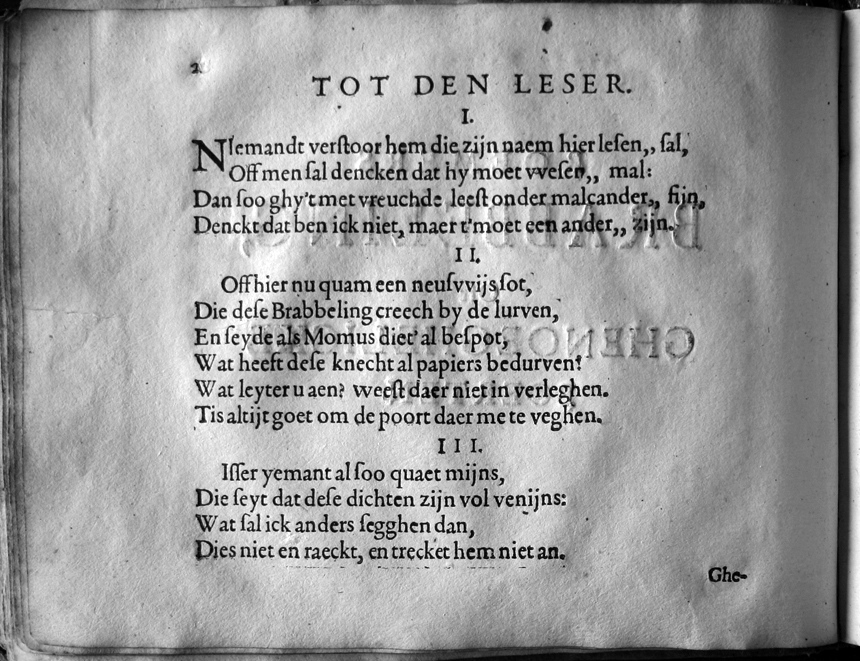 2
TOT DEN LESER.
I.
NIemandt verſtoor hem die zijn naem hier leſen,, ſal,
Off men ſal dencken dat hy moet vveſen,, mal:
Dan ſoo ghy't met vreuchde leeſt onder malcander,, fijn,
Denckt dat ben ick niet, maer t'moet een ander,, zijn.
II.
Off hier nu quam een neuſvvijs ſot,
Die deſe Brabbeling creech by de lurven,
En ſeyde als Momus diet' al beſpot,
Wat heeft deſe knecht al papiers bedurven!
Wat leyter u aen? weeſt daer niet in verleghen.
Tis altijt goet om de poort daer me te veghen.
III.
Iſſer yemant al ſoo quaet mijns,
Die ſeyt dat deſe dichten zijn vol venijns:
Wat ſal ick anders ſegghen dan,
Dies niet en raeckt, en trecket hem niet an.
Ghe-